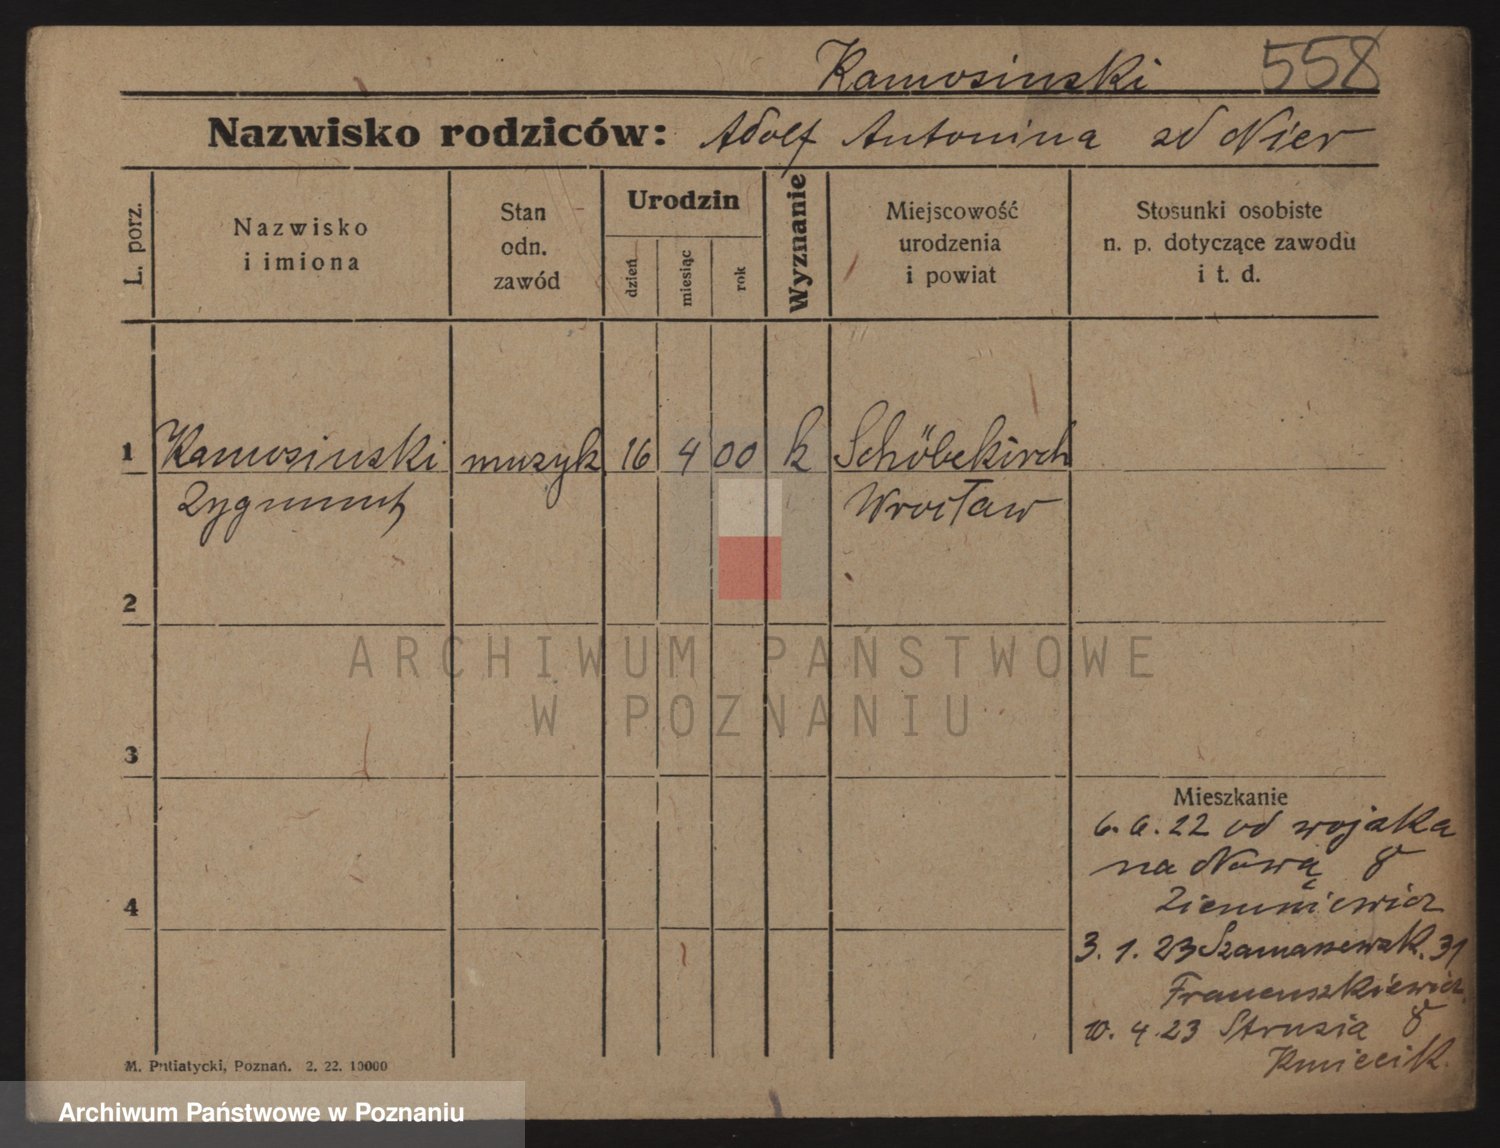 Kamosinski 558
Nazwisko rodziców: Adolf Antonina zd Nier
L. porz.
Nazwisko i imiona
Stan odn. zawód
Urodzin
dzień
miesiąc
rok
Wyznanie
Miejscowość urodzenia i powiat
Stosunki osobiste n. p. dotyczące zawodu i t. d.
1 Kamosinski muzyk 16 4 00 k Schöbekirch
Zygmunt Wrocław
2
3
Mieszkanie
6. 6. 22 od wojska
na Nową 8
4
3. 1. 23 Szamarzewsk. 31
10. 4. 23 Strusia 8
Kmiecik.
M. Putiatycki, Poznań. 2. 22. 10000
ARCHIWUM PAŃSTWOWE
W POZNANIU
Archiwum Państwowe w Poznaniu